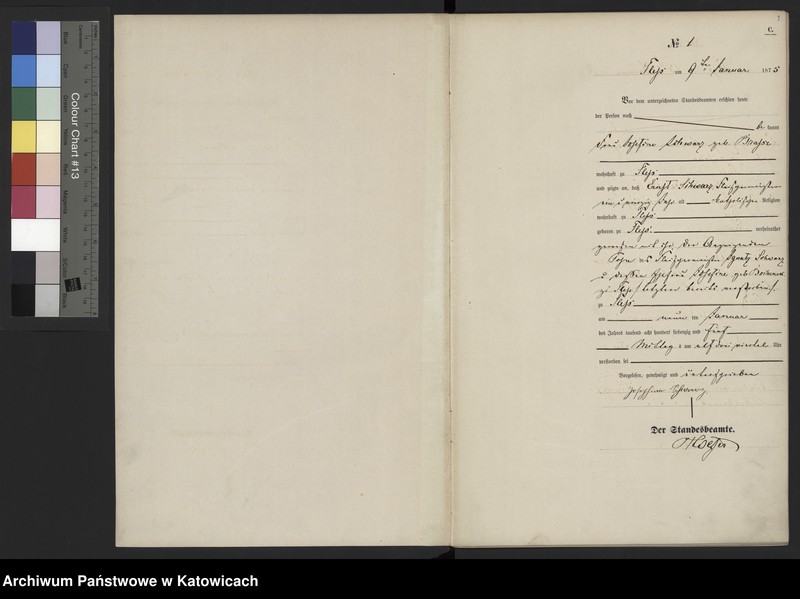 C.
№ 1
Pless am 9 ten Januar 1875
Vor dem unterzeichneten Standesbeamten erschien heute
der Person nach
be kannt
Frau Josefine Schwarz geb.
wohnhaft zu Pless
und zeigte an, daß Ernst Schwarz
alt katholischer Religion
wohnhaft zu Pless
geboren zu Pless verheirathet
gewesen mit ihr, der Anzeigenden
Sohn des Ignatz Schwarz
u dessen Ehefrau Josefine geb.
zu Pless letztere bereits verstorben
zu Pless
am neun ten Januar
des Jahres tausend acht hundert siebenzig und fünf
Mittag s um elf drei viertel Uhr
verstorben sei
Vorgelesen, genehmigt und unterschrieben
Josephine Schwarz
Der Standesbeamte.
Colour Chart #13
Blue
Cyan
Green
Yellow
Red
Magenta
White
3/Color
Black
Centimetres
Archiwum Państwowe w Katowicach